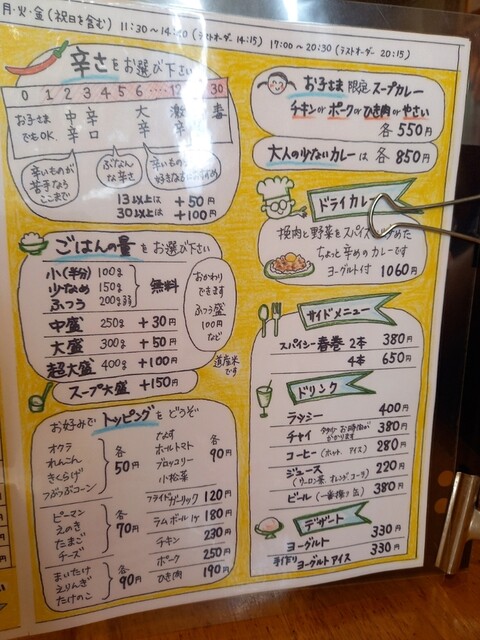 月・火・金(祝日を含む) 11:30～14:30(ラストオーダー 14:15) 17:00～20:30(ラストオーダー 20:15)
辛さをお選び下さい
0 1 2 3 4 5 6 ‥‥ 30
お子さまでもOK.
中辛
辛口
大辛
激辛
辛いものが
苦手なら
ここまで
ぶなん
な辛さ
13以上は +50円
30以上は +100円
ごはんの量をお選び下さい
小(半分) 100g
少なめ 150g
ふつう 200g弱
無料
中盛 250g +30円
大盛 300g +50円
超大盛 400g +100円
おかわり
できます
ふつう盛
100円
など
道産米
です
スープ大盛 +150円
お好みでトッピングをどうぞ
オクラ
れんこん
きくらげ
つぶつぶコーン
各50円
ピーマン
えのき
たまご
チーズ
各70円
まいたけ
えりんぎ
たけのこ
各90円
なす
ホールトマト
ブロッコリー
小松菜
各90円
フライドガーリック 120円
ラムボール1ケ 180円
チキン 230円
ポーク 250円
ひき肉 190円
お子さま限定スープカレー
チキンorポークorひき肉orやさい
各550円
大人の少ないカレーは 各850円
ドライカレー
挽肉と野菜をスパイスで
ちょっと辛めのカレーです
ヨーグルト付 1060円
サイドメニュー
スパイシー春巻 2本 380円
4本 650円
ドリンク
ラッシー 400円
チャイ 多少お時間がかかります 380円
コーヒー(ホット、アイス) 280円
ジュース 220円
(ウーロン茶 オレンジ コーラ)
ビール(一番搾り缶) 380円
デザート
ヨーグルト 330円
手作りヨーグルトアイス 330円